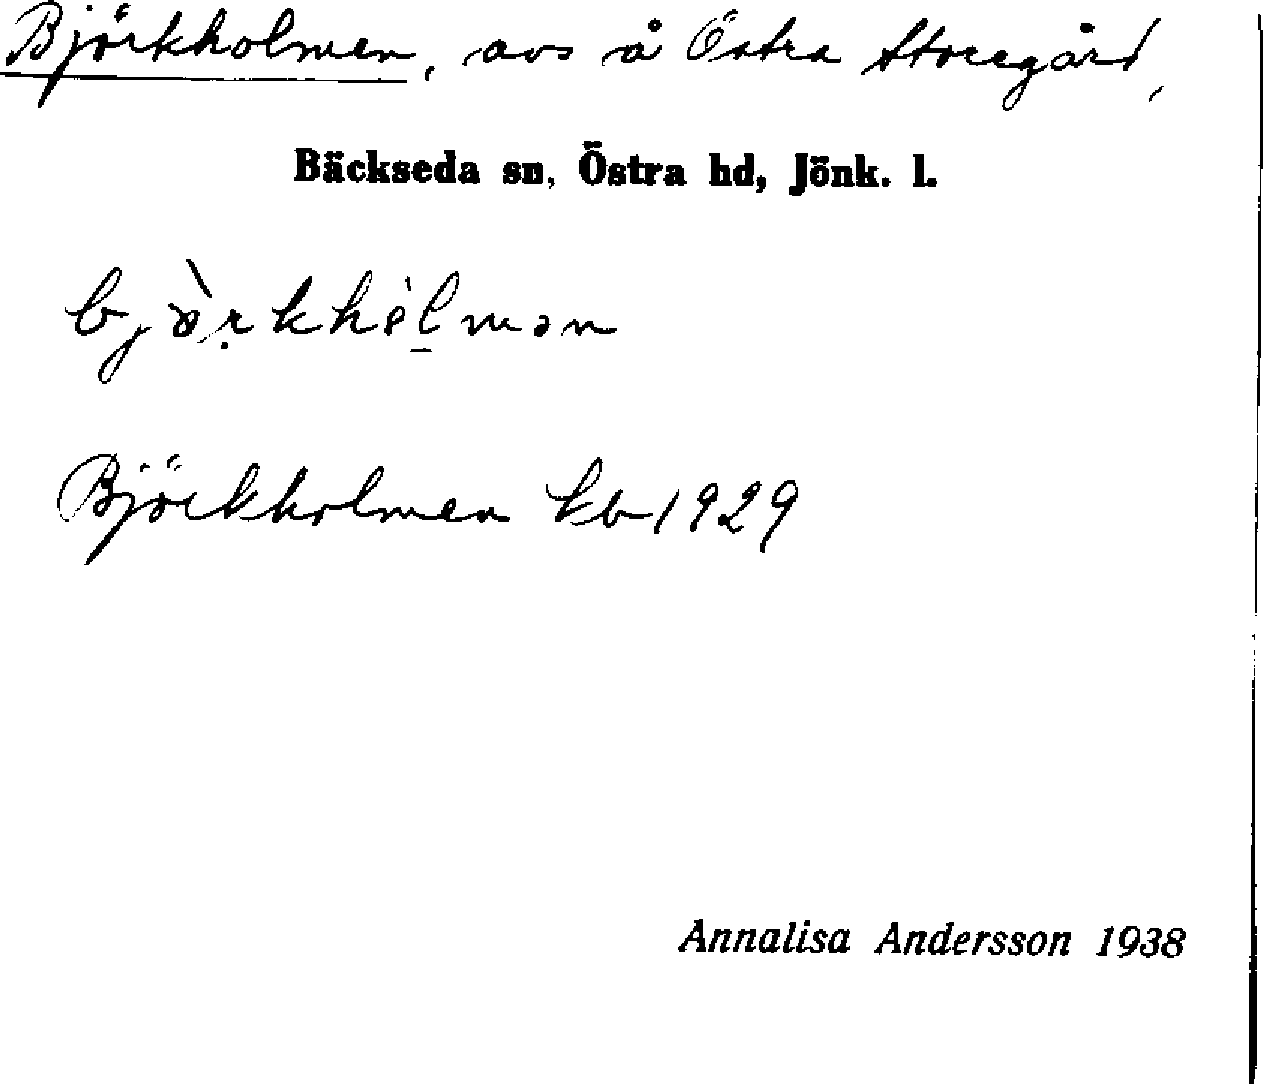 Björkholmen, avs å Östra Storegård,
Bäckseda sn, Östra hd, Jönk. l.
bjò̤rkhòlmən
Björkholmen kb 1929
Annalisa Andersson 1938